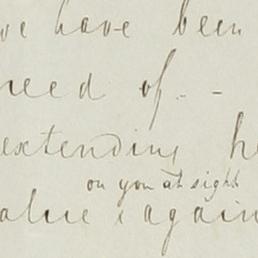 ve have been
need of - -
extending he
on you at sight
value & again